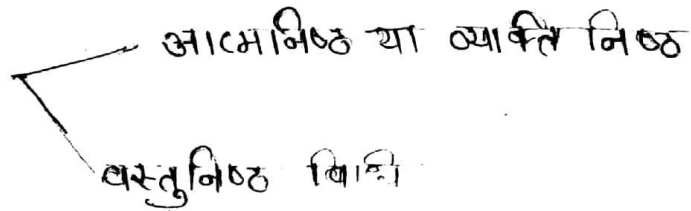 आत्मनिष्ठ या व्यक्ति निष्ठ
वस्तुनिष्ठ विधि